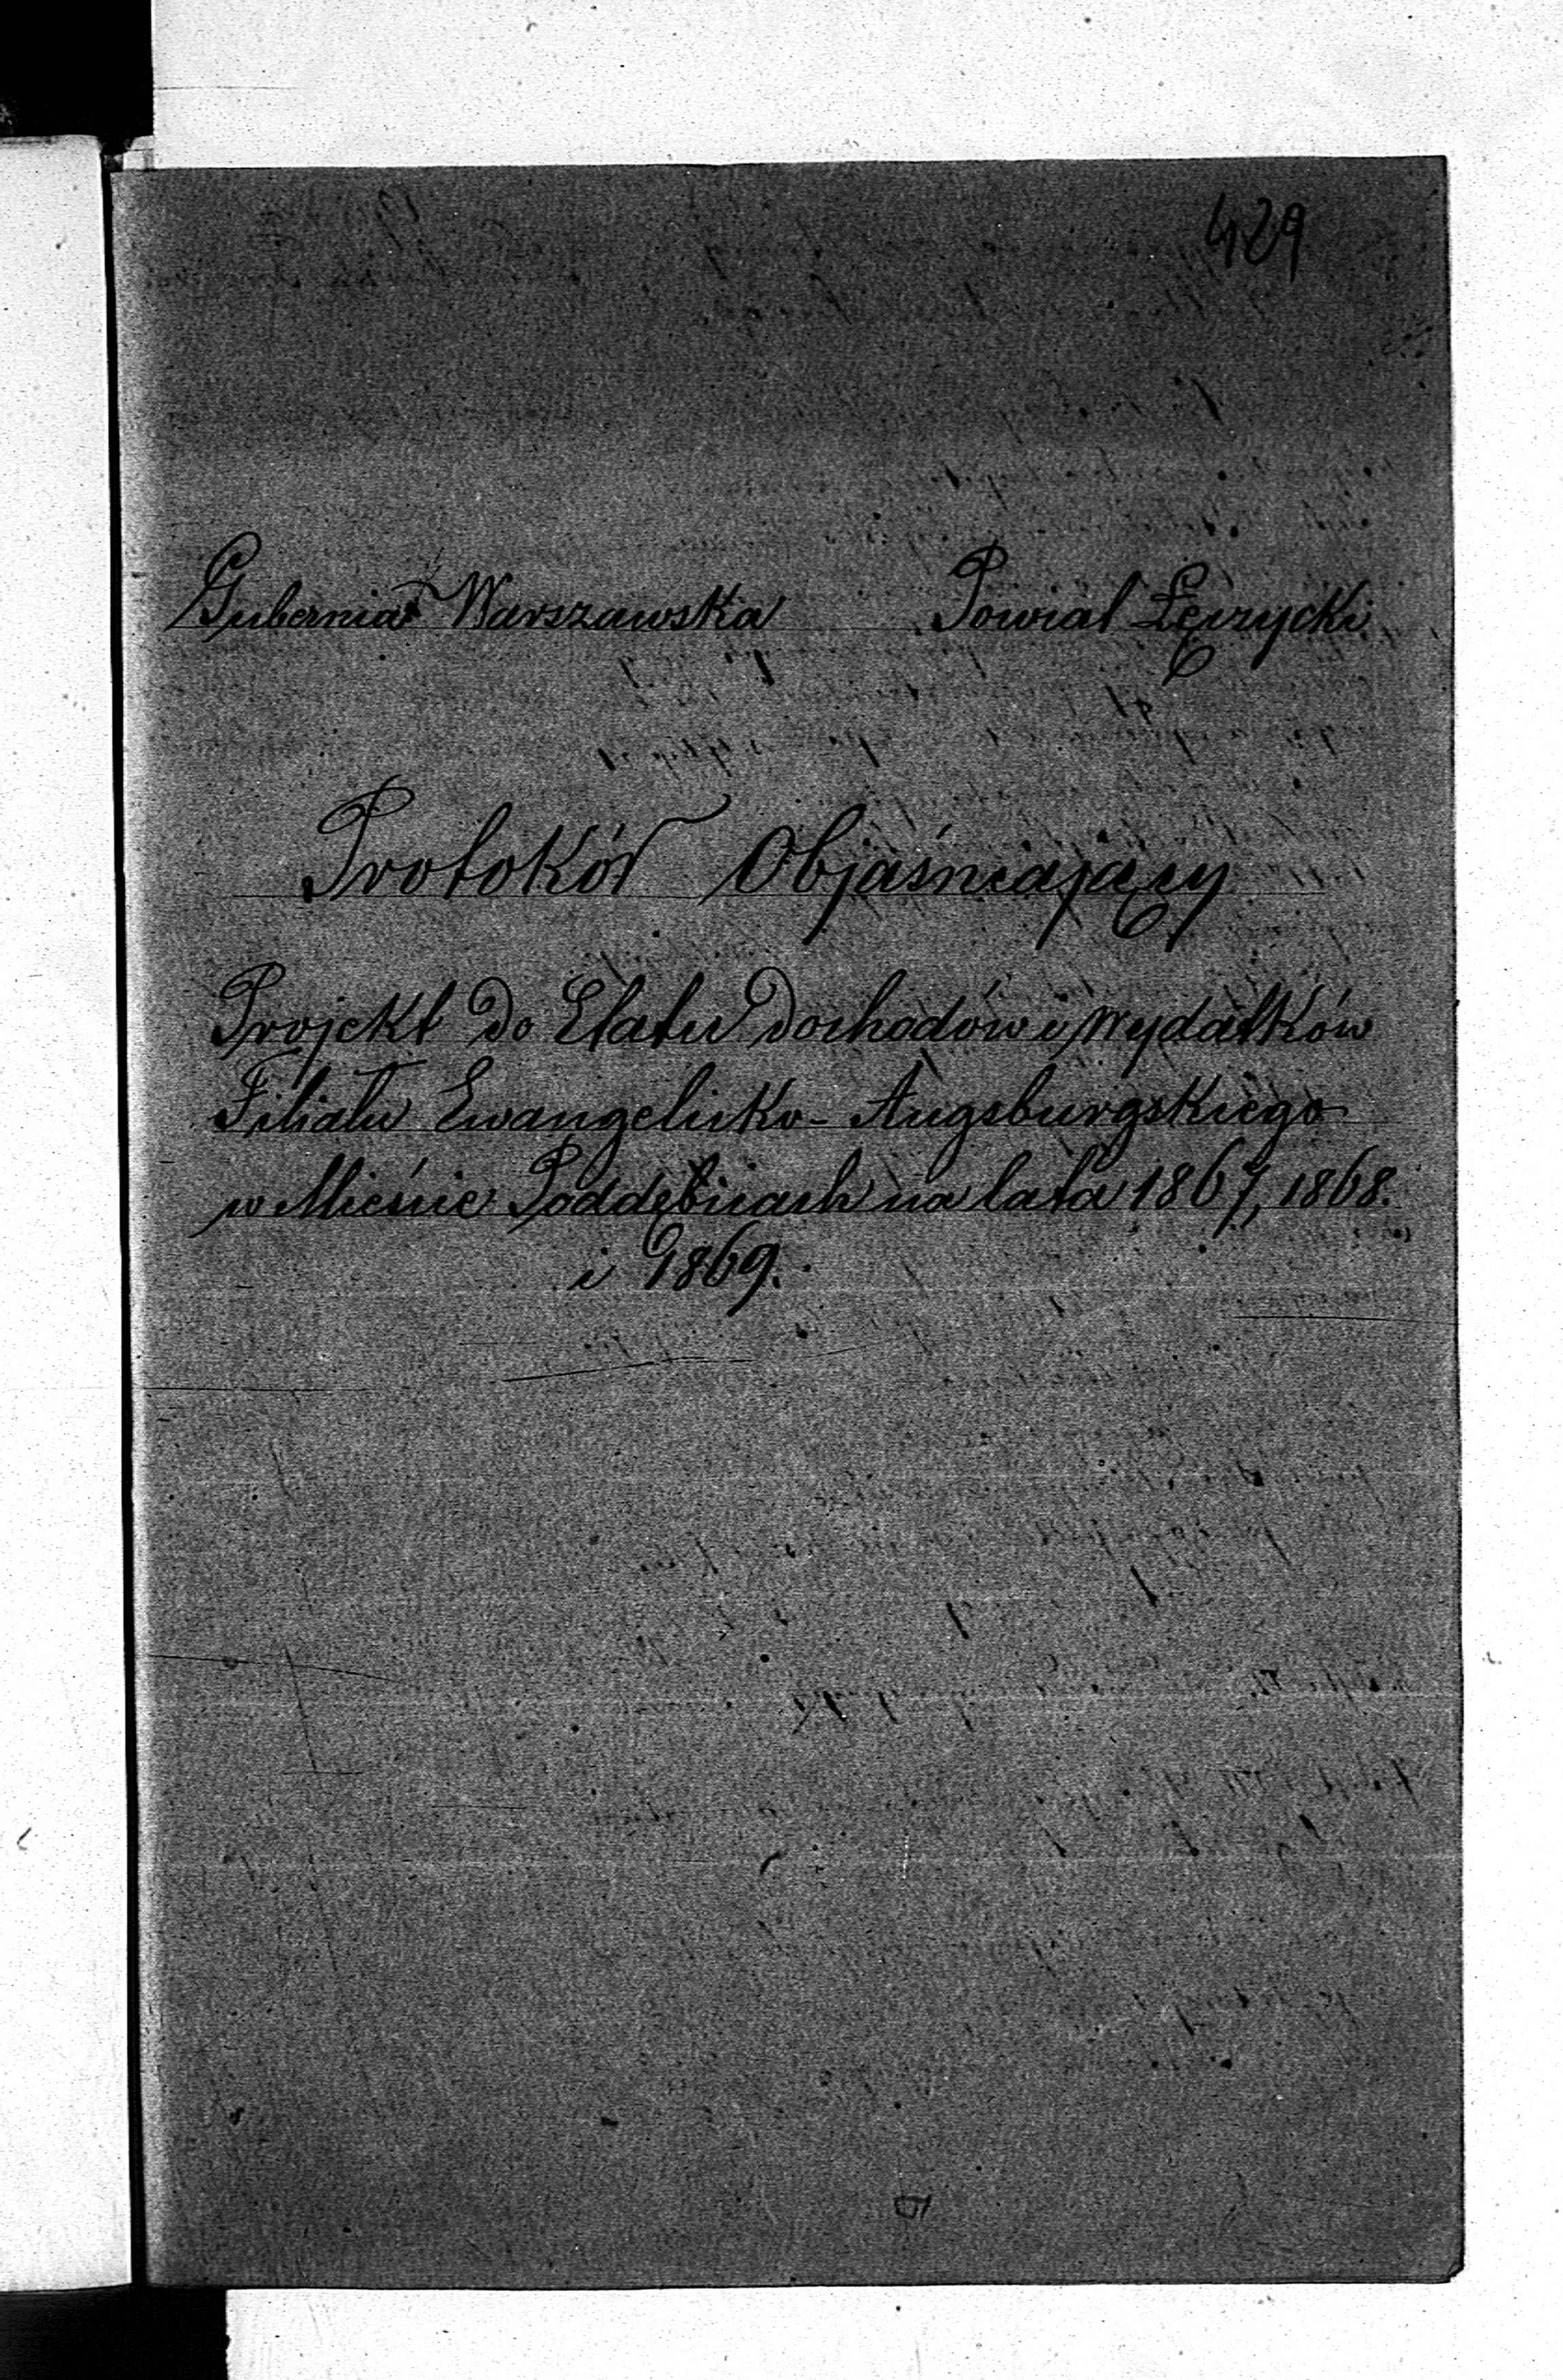 429
Gubernia Warszawska Powiat Łęczycki
Protokół Objaśniający
Projekt do Etatu dochodów i wydatków
Filiału Ewangelicko-Augsburgskiego
w Mieście Poddębicach na lata 1867, 1868.
i 1869.